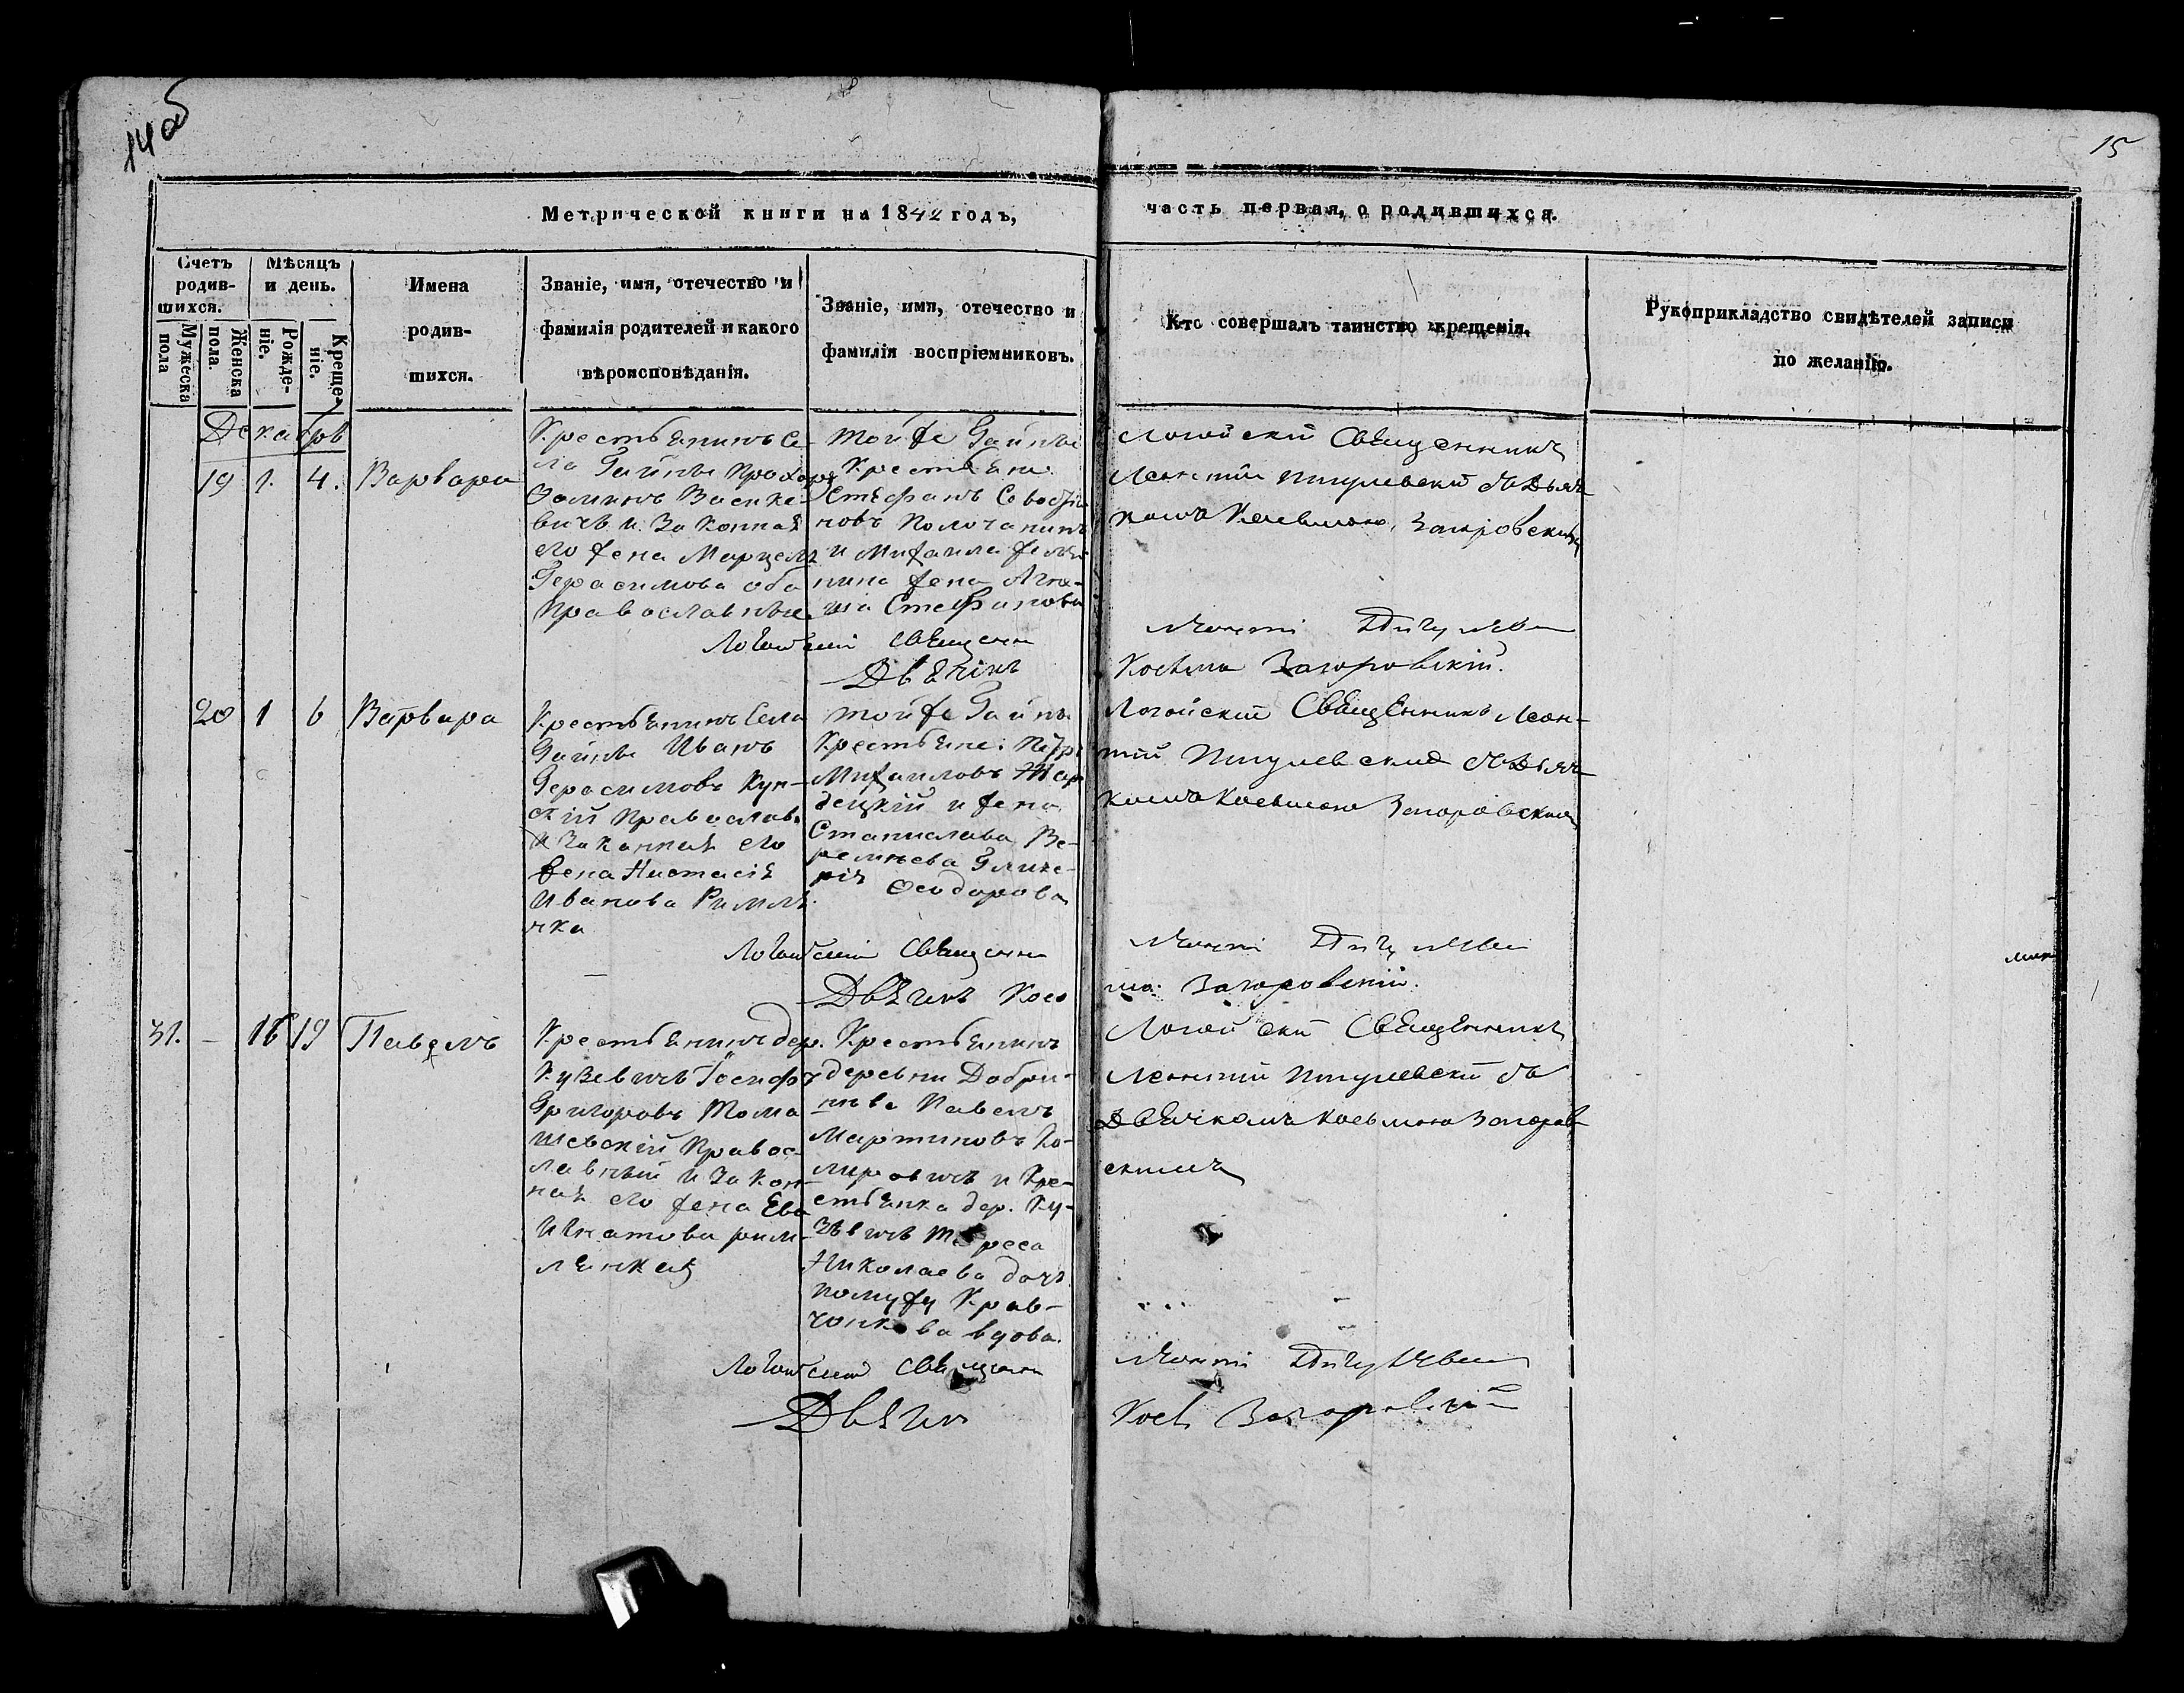 14 об
15
Метрической книги на 1842 годъ,
часть первая, о родившихся.
Счетъ родив-
шихся.
Мужеска пола
Женска пола.
Мѣсяцъ и день.
Рожде-
ніе.
Креще-
ніе.
Имена
родив-
шихся.
Званіе, имя, отечество и
фамилія родителей и какого
вѣроисповѣданія.
Званіе, имя, отечество и
фамилія воспріемниковъ.
Кто совершалъ таинство крещенія.
Рукоприкладство свидѣтелей записи
по желанію.
Декабрь
19 1. 4. Варвара
Крестьянинъ Се-
ла Гайны Прохоръ
Фоминъ Васике-
вичъ и Законная
его жена
Герасимова оба
Православные
Той же Гайны
Крестьяне
Стефанъ
новъ Полочанинъ
и Михаила
нина жена
Стефанова
Логойскій Священникъ
Леонтій Пигулевскій съ Дьяч-
комъ Космою Загоровскимъ
Логойскій Священни
Дьячикъ
Леонтій Пигулевс
Косьма Загоровскій.
20 1 6 Варвара
Крестьянинъ Села
Гайны Иванъ
Герасимовъ Кун-
скій Православ.
и Законная его
жена Настасія
Иванова Римля
нка
Той же Гайны
Крестьяне: Петръ
Михаиловъ
децкій и жена
Станислава Ве-
ремѣева Глике-
рія Феодорова
Логойскій Священникъ Леон-
тій Пигулевскій съ Дьяч-
комъ Косьмою Загоровским
Логойскій Священни
Дьячикъ Кось
Леонтій Пигулевс
ма Загоровскій.
31. - 16 19 Павелъ
Крестьянинъ дер.
Кузевичъ Іосифъ
Григоровъ Тома
шевскій Правос-
лавный и Закон-
ная его жена Ева
Игнатова рим-
лянка
Крестьянинъ
деревни Добри-
нева Павелъ
Мартиновъ Ко-
мировичъ и Кре-
стьянка дер. Ку-
зевичъ Тереса
Николаева дочь
по мужу Крав-
чонкова вдова.
Логойскій Священникъ
Леонтій Пигулевскій съ
Дьячкомъ Косьмою Загоров-
скимъ
Логойскій Священни
Дьячик
Леонтій Пигулевс
Кось Загоровскій